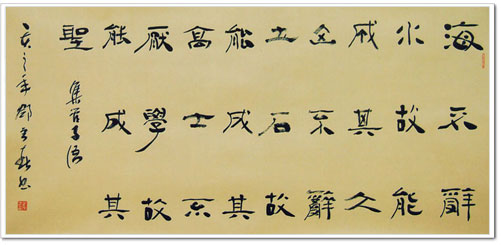 海不辭
水故能
成其大
山不辭
土石故
能成其
高士不
厭學故
能成其
聖
集管子語
之年鄧書